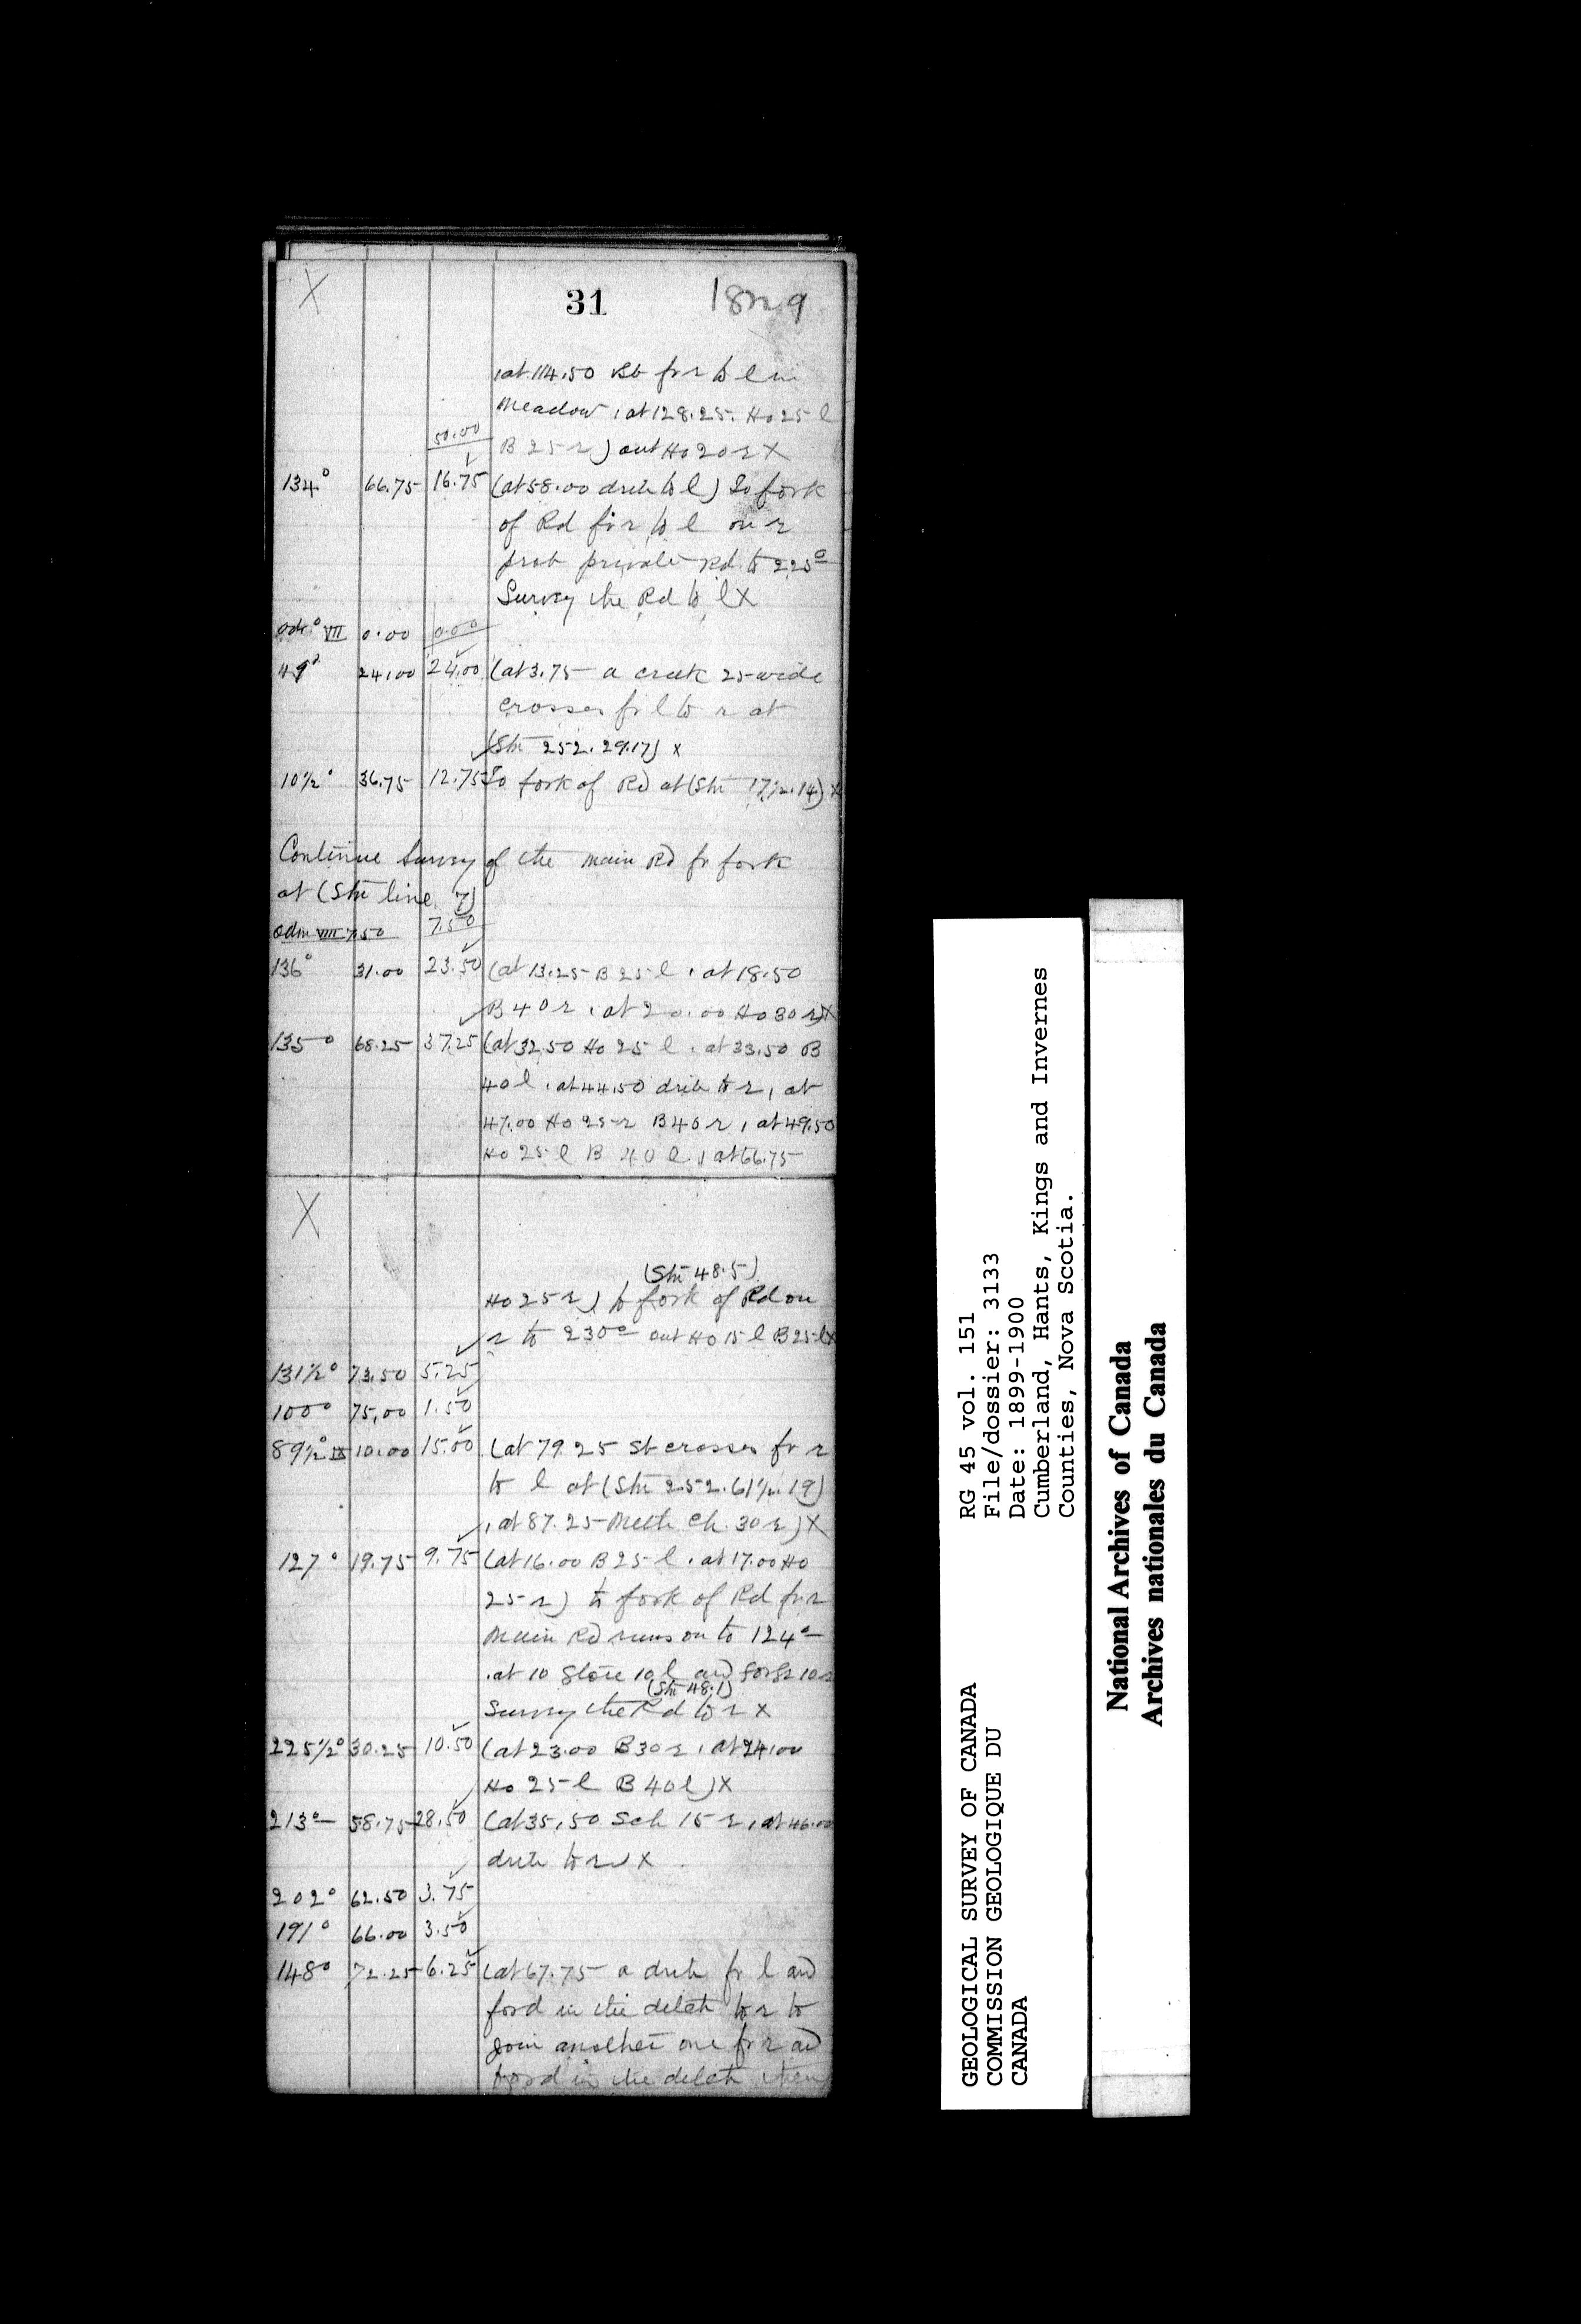 X 31 18n.9
, at 114.50 Rb fr r to l in
Meadow, at 128.25. Ho 25 l
50.00 B 25 r) out Ho 20 r X
134° 66.75 16.75 (at 58.00 to l) To fork
of Rd fr r to l on r
prob private Rd to 225°
Survey the Rd to l X
Odr VII 0.00 0.00
49° 24.00 24.00 (at 3.75 a creek 25 wide
crosses fr l to r at
(Stn 252.29.17) x
10½° 36.75 12.75 To fork of Rd at (Stn 17½.14) x
Continue Survey of the main Rd fr fork
at (Stn line, 7)
Odm VIII 7.50 7.50
136° 31.00 23.50 (at 13.25 B 25 l, at 18.50
B 40 r, at 20.00 Ho 30 r) X
135° 68.25 37.25 (at 32.50 Ho 25 l, at 33.50 B
40 l, at 44.50 to r, at
47.00 Ho 25 r B 40 r, at 49.50
Ho 25 l B 40 l, at 66.75
X
(Stn 48.5)
Ho 25 r) to fork of Rd on
r to 230° out Ho 15 l B 25 l x
131½° 73.50 5.25
100° 75.00 1.50
89½° IX 10.00 15.00 (at 79.25 St crosses fr r
to l at (Stn 252.61½.19)
, at 87.25 Meth Ch. 30 r) X
127° 19.75 9.75 (at 16.00 B 25 l, at 17.00 Ho
25 r) to fork of Rd fr r
Main Rd runs on to 124°
, at 10 Store 10 l and 10 r
(Stn 48.1)
Survey the Rd to r x
225½° 30.25 10.50 (at 23.00 B 30 r, at 24.00
Ho 25 l B 40 l) X
213° 58.75 28.50 (at 35.50 Sch 15 r, at 46.00
to r) X
202° 62.50 3.75
191° 66.00 3.50
148° 72.25 6.25 (at 67.75 a fr l and
ford in the to r to
join another one fr r and
ford in the then
GEOLOGICAL SURVEY OF CANADA
COMMISSION GEOLOGIQUE DU
CANADA
RG 45 vol. 151
File/dossier: 3133
Date: 1899-1900
Cumberland, Hants, Kings and Invernes
Counties, Nova Scotia.
National Archives of Canada
Archives nationales du Canada